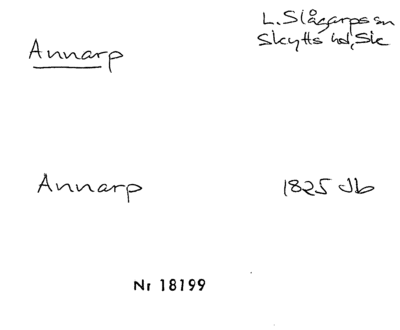 Annarp
L. Slågarps sn
Skytts hd, Sk
Annarp
1825 Jb
Nr 18199